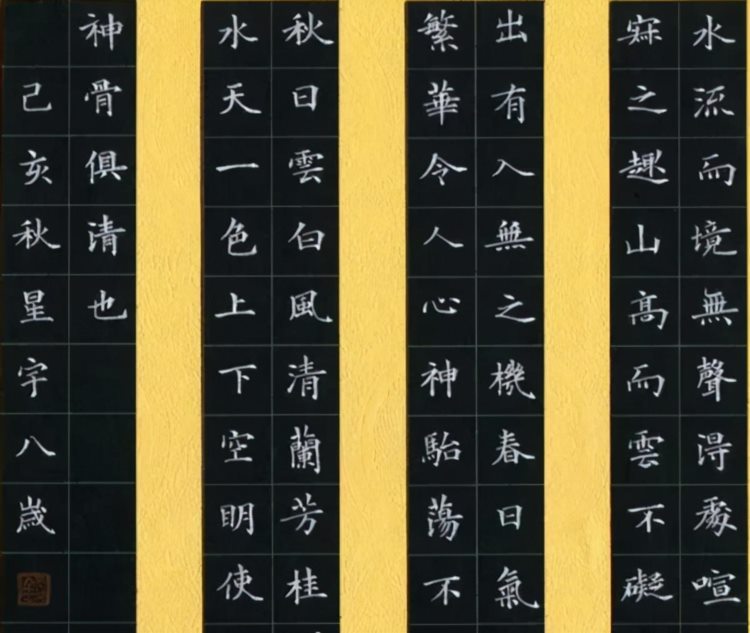 水流而境無聲得處喧
寂之趣山高而雲不礙
出有入無之機春日氣
繁華令人心神駘蕩不
秋日雲白風清蘭芳桂
水天一色上下空明使
神骨俱清也
己亥秋星宇八歲